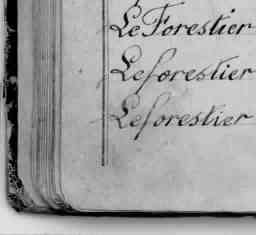 Le Forestier
Leforestier
Leforestier